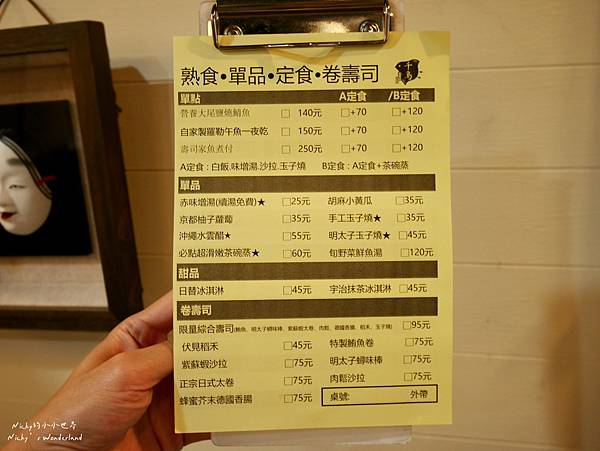 熟食•單品•定食•卷壽司
單點 A定食 /B定食
營養大尾鹽燒鯖魚 □ 140元 □+70 □+120
自家製羅勒午魚一夜乾 □ 150元 □+70 □+120
壽司家魚煮付 □ 250元 □+70 □+120
A定食：白飯.味增湯.沙拉.玉子燒 B定食：A定食+茶碗蒸
單品
赤味增湯(續湯免費)★ □25元 胡麻小黃瓜 □35元
京都柚子蘿蔔 □35元 手工玉子燒★ □35元
沖繩水雲醋★ □55元 明太子玉子燒★ □45元
必點超滑嫩茶碗蒸★ □60元 旬野菜鮮魚湯 □120元
甜品
日替冰淇淋 □45元 宇治抹茶冰淇淋 □45元
卷壽司
限量綜合壽司(鮪魚、明太子蟳味棒、紫蘇蝦太卷、肉鬆、德國香腸、稻禾、玉子燒) □95元
伏見稻禾 □45元 特製鮪魚卷 □75元
紫蘇蝦沙拉 □75元 明太子蟳味棒 □75元
正宗日式太卷 □75元 肉鬆沙拉 □75元
蜂蜜芥末德國香腸 □75元 桌號: 外帶
Nicky的小小世界
Nicky's Wonderland